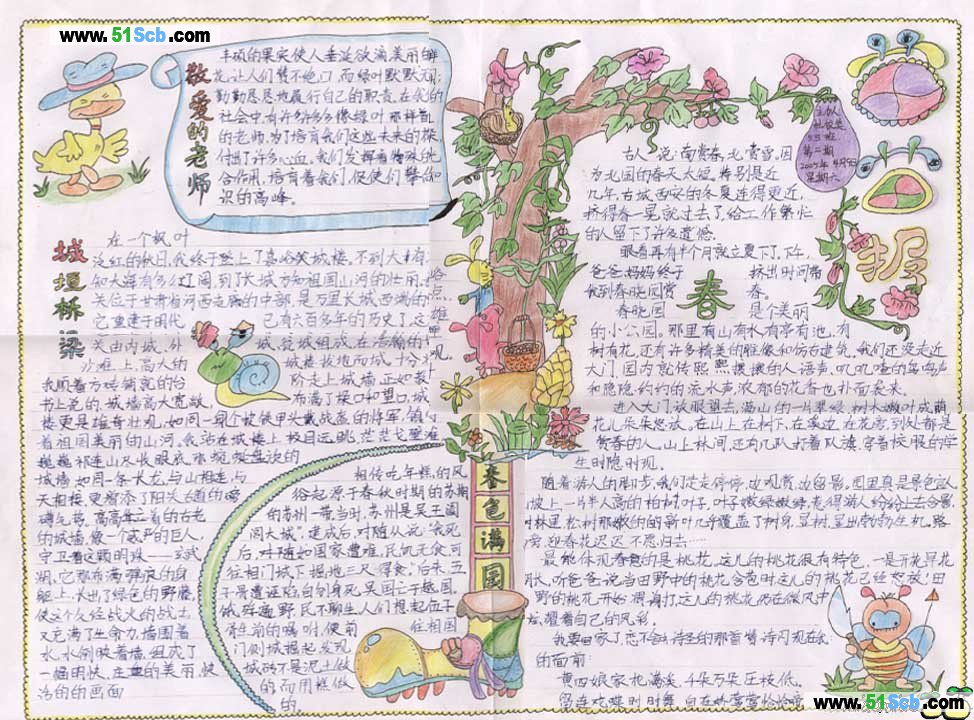 www.51Scb.com
敬爱的老师
丰硕的果实使人垂涎欲滴美丽的鲜
花让人们赞不绝口,而绿叶默默无
勤勤恳恳地履行自己的职责。在我的
社会中,有许许多多像绿叶那样
的老师,为了培育我们这些未来的
付出了许多心血。我们发挥着
合作用,培育着我们,促使们攀
识的高峰。
城墙桥梁
在一个枫叶
红的秋日,我终于登上了嘉峪关城楼。不到大
知大海有多辽阔,到了长城方知祖国山河的壮丽。
关位于甘肃省河西走廊的中部,是万里长城西端的
它重建于明代 已有六百多年的历史了。这
关由内城、外 城、瓮城组成,在浩瀚的
沙滩上,高大的 城楼拔地而城,十分
我顺着方砖铺就的台 阶走上城墙。正如
书上说的,城墙高大宽敞, 布满了垛口和望口,城
楼更是雄奇壮观,如同一个个披铁甲头戴战盔的将军,镇
着祖国美丽的山河。我站在城楼上,极目远眺,茫茫戈壁
巍巍祁连山尽收眼底,
城墙如同一条长龙,与山相连,与
天相接,更增添了阳关古道的
礴气势。高高矗立着的古老
的城墙,像一个威严的巨人,
守卫着这颗明珠——玄武
湖,它那布满弹痕的身
躯上,长出了绿色的野藤,
使这个久经战火的战士
又充满了生命力,墙围着
水,水倒映着墙,组成了
一幅明快、庄重的美丽、
洁的的画面
相传吃年糕的风
俗起源于春秋时期的苏
的苏州一带。当时,苏州是吴王阖
闾大城”,建成后,对随从说:“我死
后,对随如国家遭难,民饥无食,可
往相门城下掘地三尺得食。”后来,五
子胥遭诬陷自刎身死,吴国亡于越国,
饿殍遍野,民不聊生,人们想起伍子
胥生前的嘱咐,便前 往相国
门侧城掘起发现,
城砖不是泥土做
的而用糕做
的。
春色满园
主办人
55班
第二期
2005年4月9日
星期六
春
古人说:南赏春,北赏雪。因
为北国的春天太短,特别是近
几年,古城西安的冬夏连得更近,
挤得春一晃就过去了,给工作繁忙
的人留下了许多遗憾。
眼看再有半个月就立夏下了。下午,
爸爸妈妈终于 挤出时间带
我到春晓园赏 春。
春晓园 是个美丽
的小公园。那里有山有水有亭有池,有
树有花,还有许多精美的雕像和仿古建筑。我们还没走近
大门,园内就传来熙熙攘攘的人语声,叽叽喳的鸟鸣声
和隐隐约约的流水声,浓郁的花香也扑面袭来。
进入大门,放眼望去,满山的一片翠绿,树木嫩叶成荫,
花儿朵朵怒放。在山上,在树下,在溪边,在花旁,到处都是
赏春的人。山上林间还有几队打着队旗,穿着校服的学
生时隐时现。
随着游人的脚步,我们走走停停,边观赏,边留影。园里真是景色
坡上,一片半人高的柏树叶子,叶子嫩绿嫩绿,惹得游人纷纷上去合影。
树林里,松树那嫩的的的新叶几乎覆盖了树身,显树,呈出勃勃生机,路
旁,迎春花迟迟不愿归去……
最能体现春意的是桃花。这儿的桃花很有特色,一是开花早花
长。听爸爸说当田野中的桃花含苞时这儿的桃花已经怒放!田
野的桃花开始凋谢了,这儿的桃花仍在微风中
炫耀着自己的风彩。
我要回家了,忽不会诗圣的那首诗闪现在
的面前:
黄四娘家花满溪,千朵万朵压枝低。
留连戏蝶时时舞,自在娇莺恰恰啼
www.51Scb.com